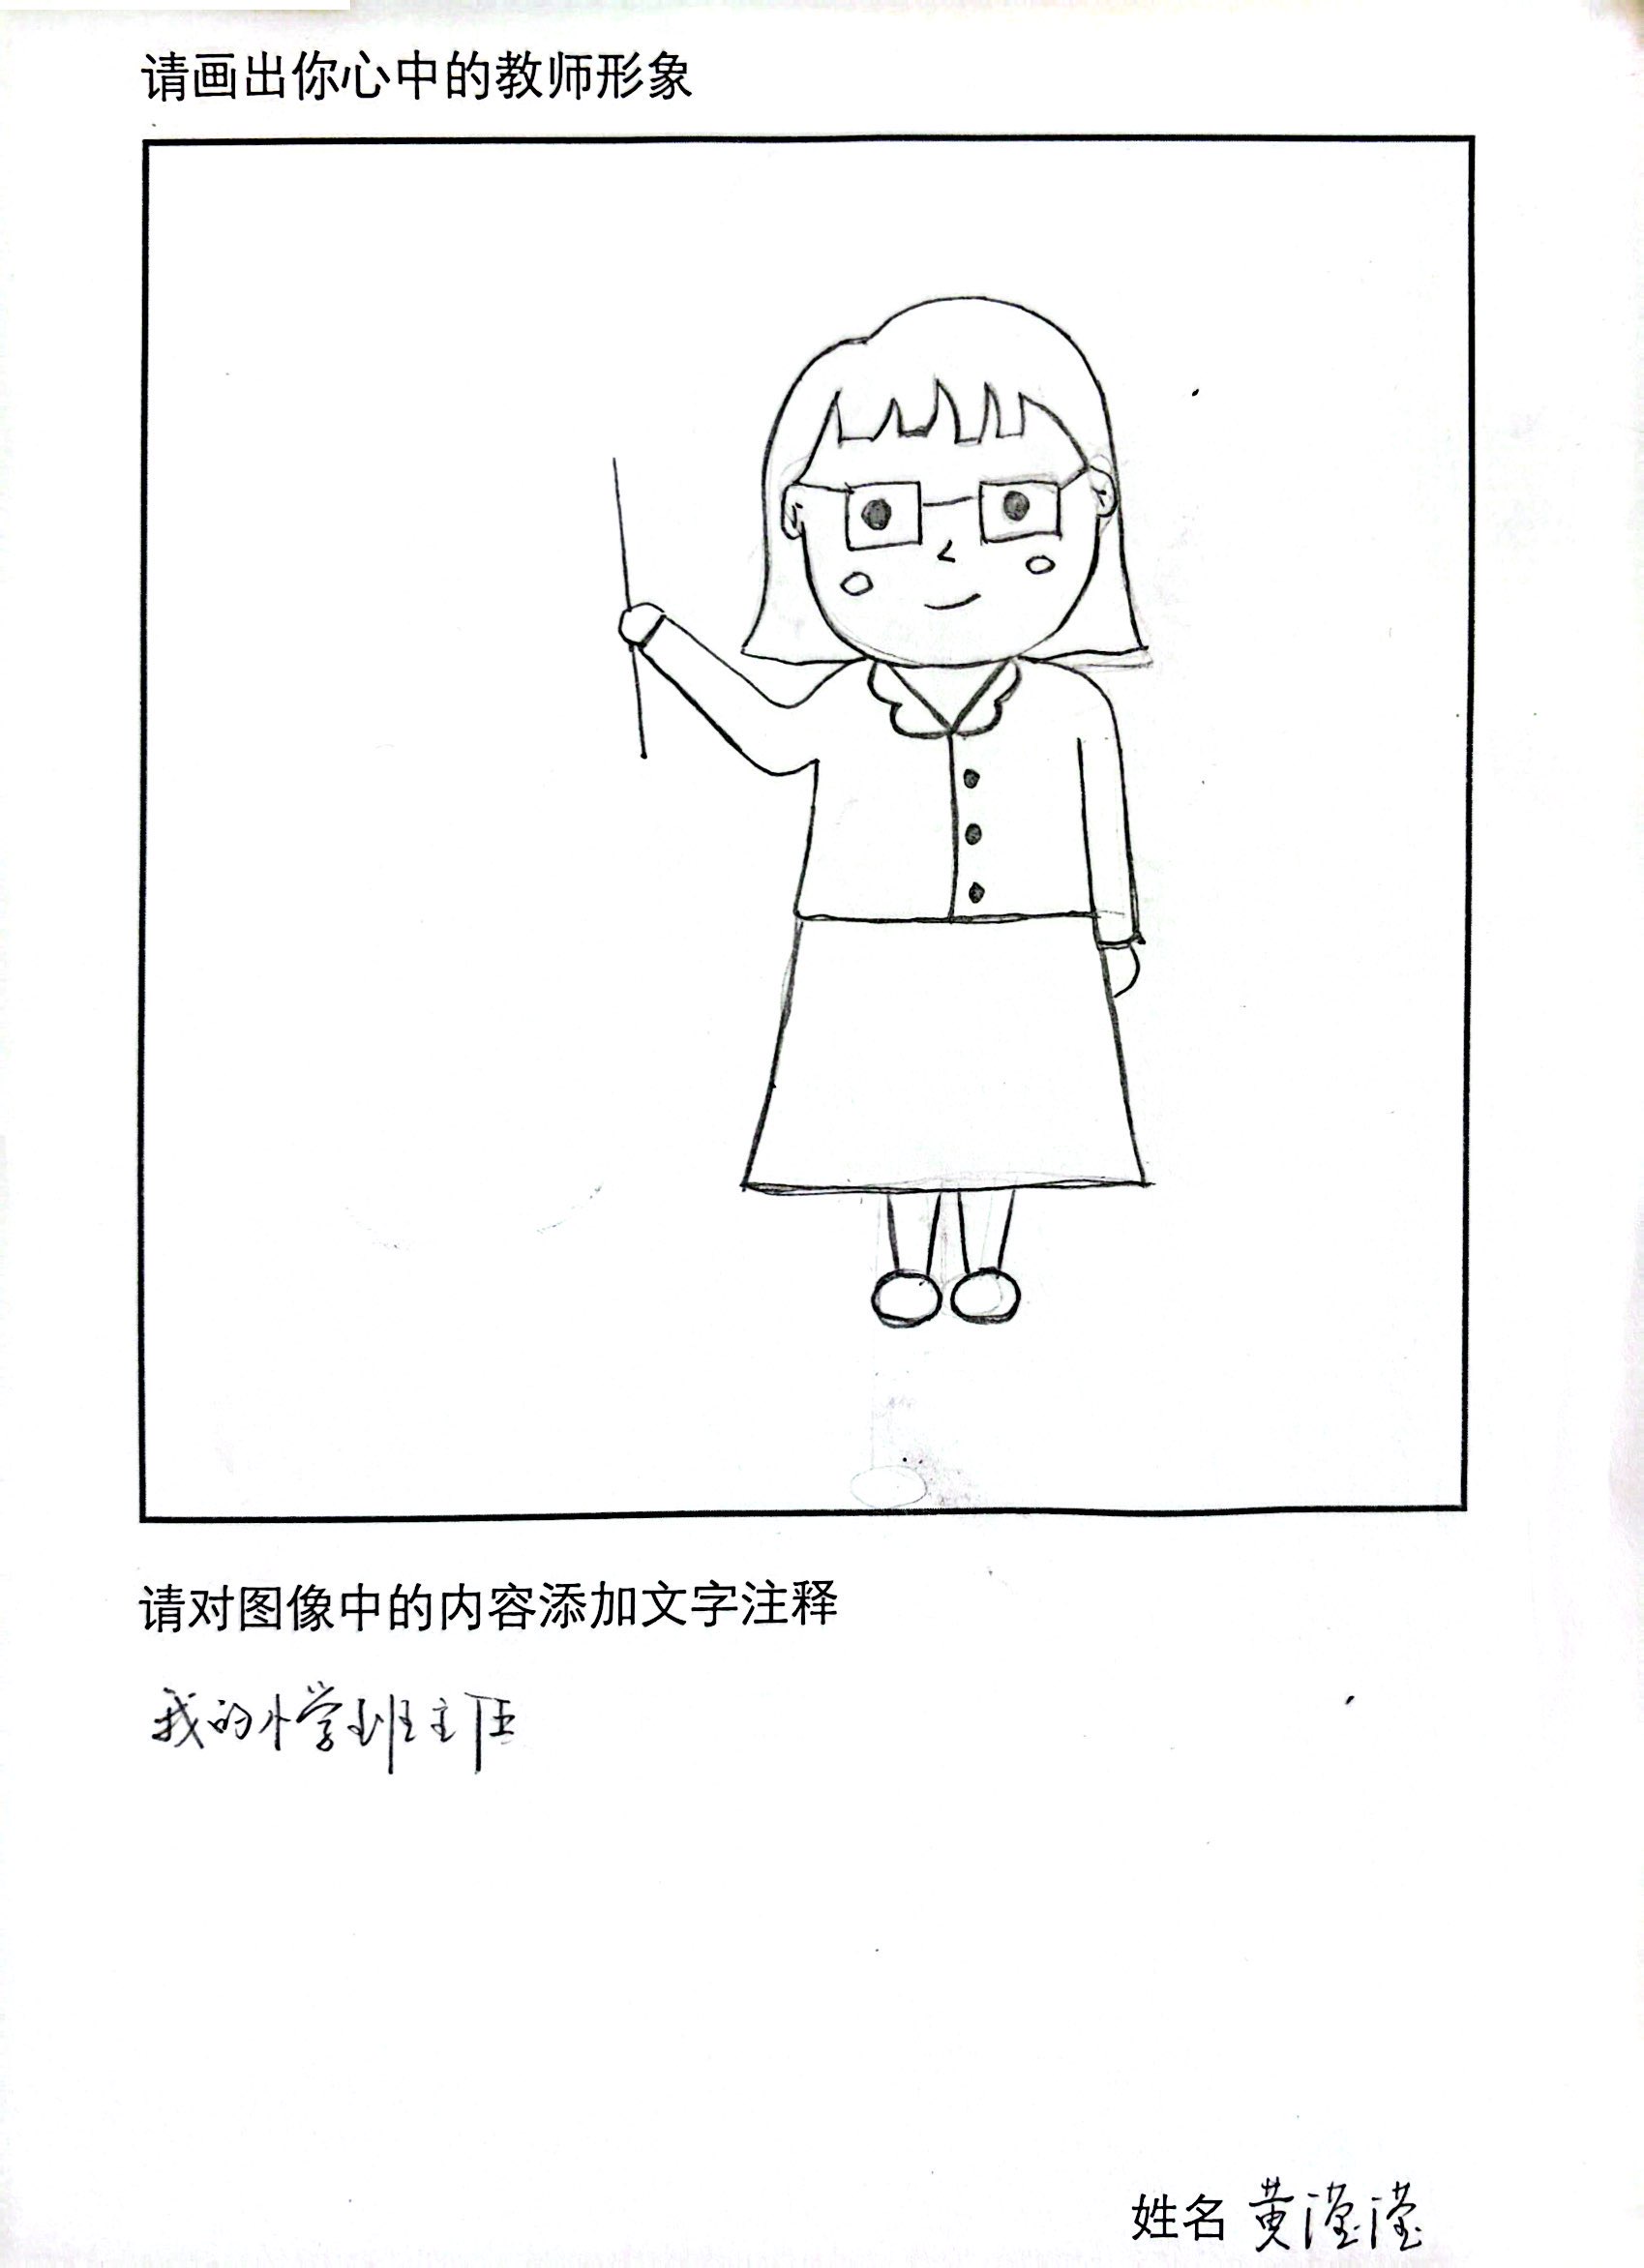 请画出你心中的教师形象
请对图像中的内容添加文字注释
我的小学班主任
姓名 黄滢滢